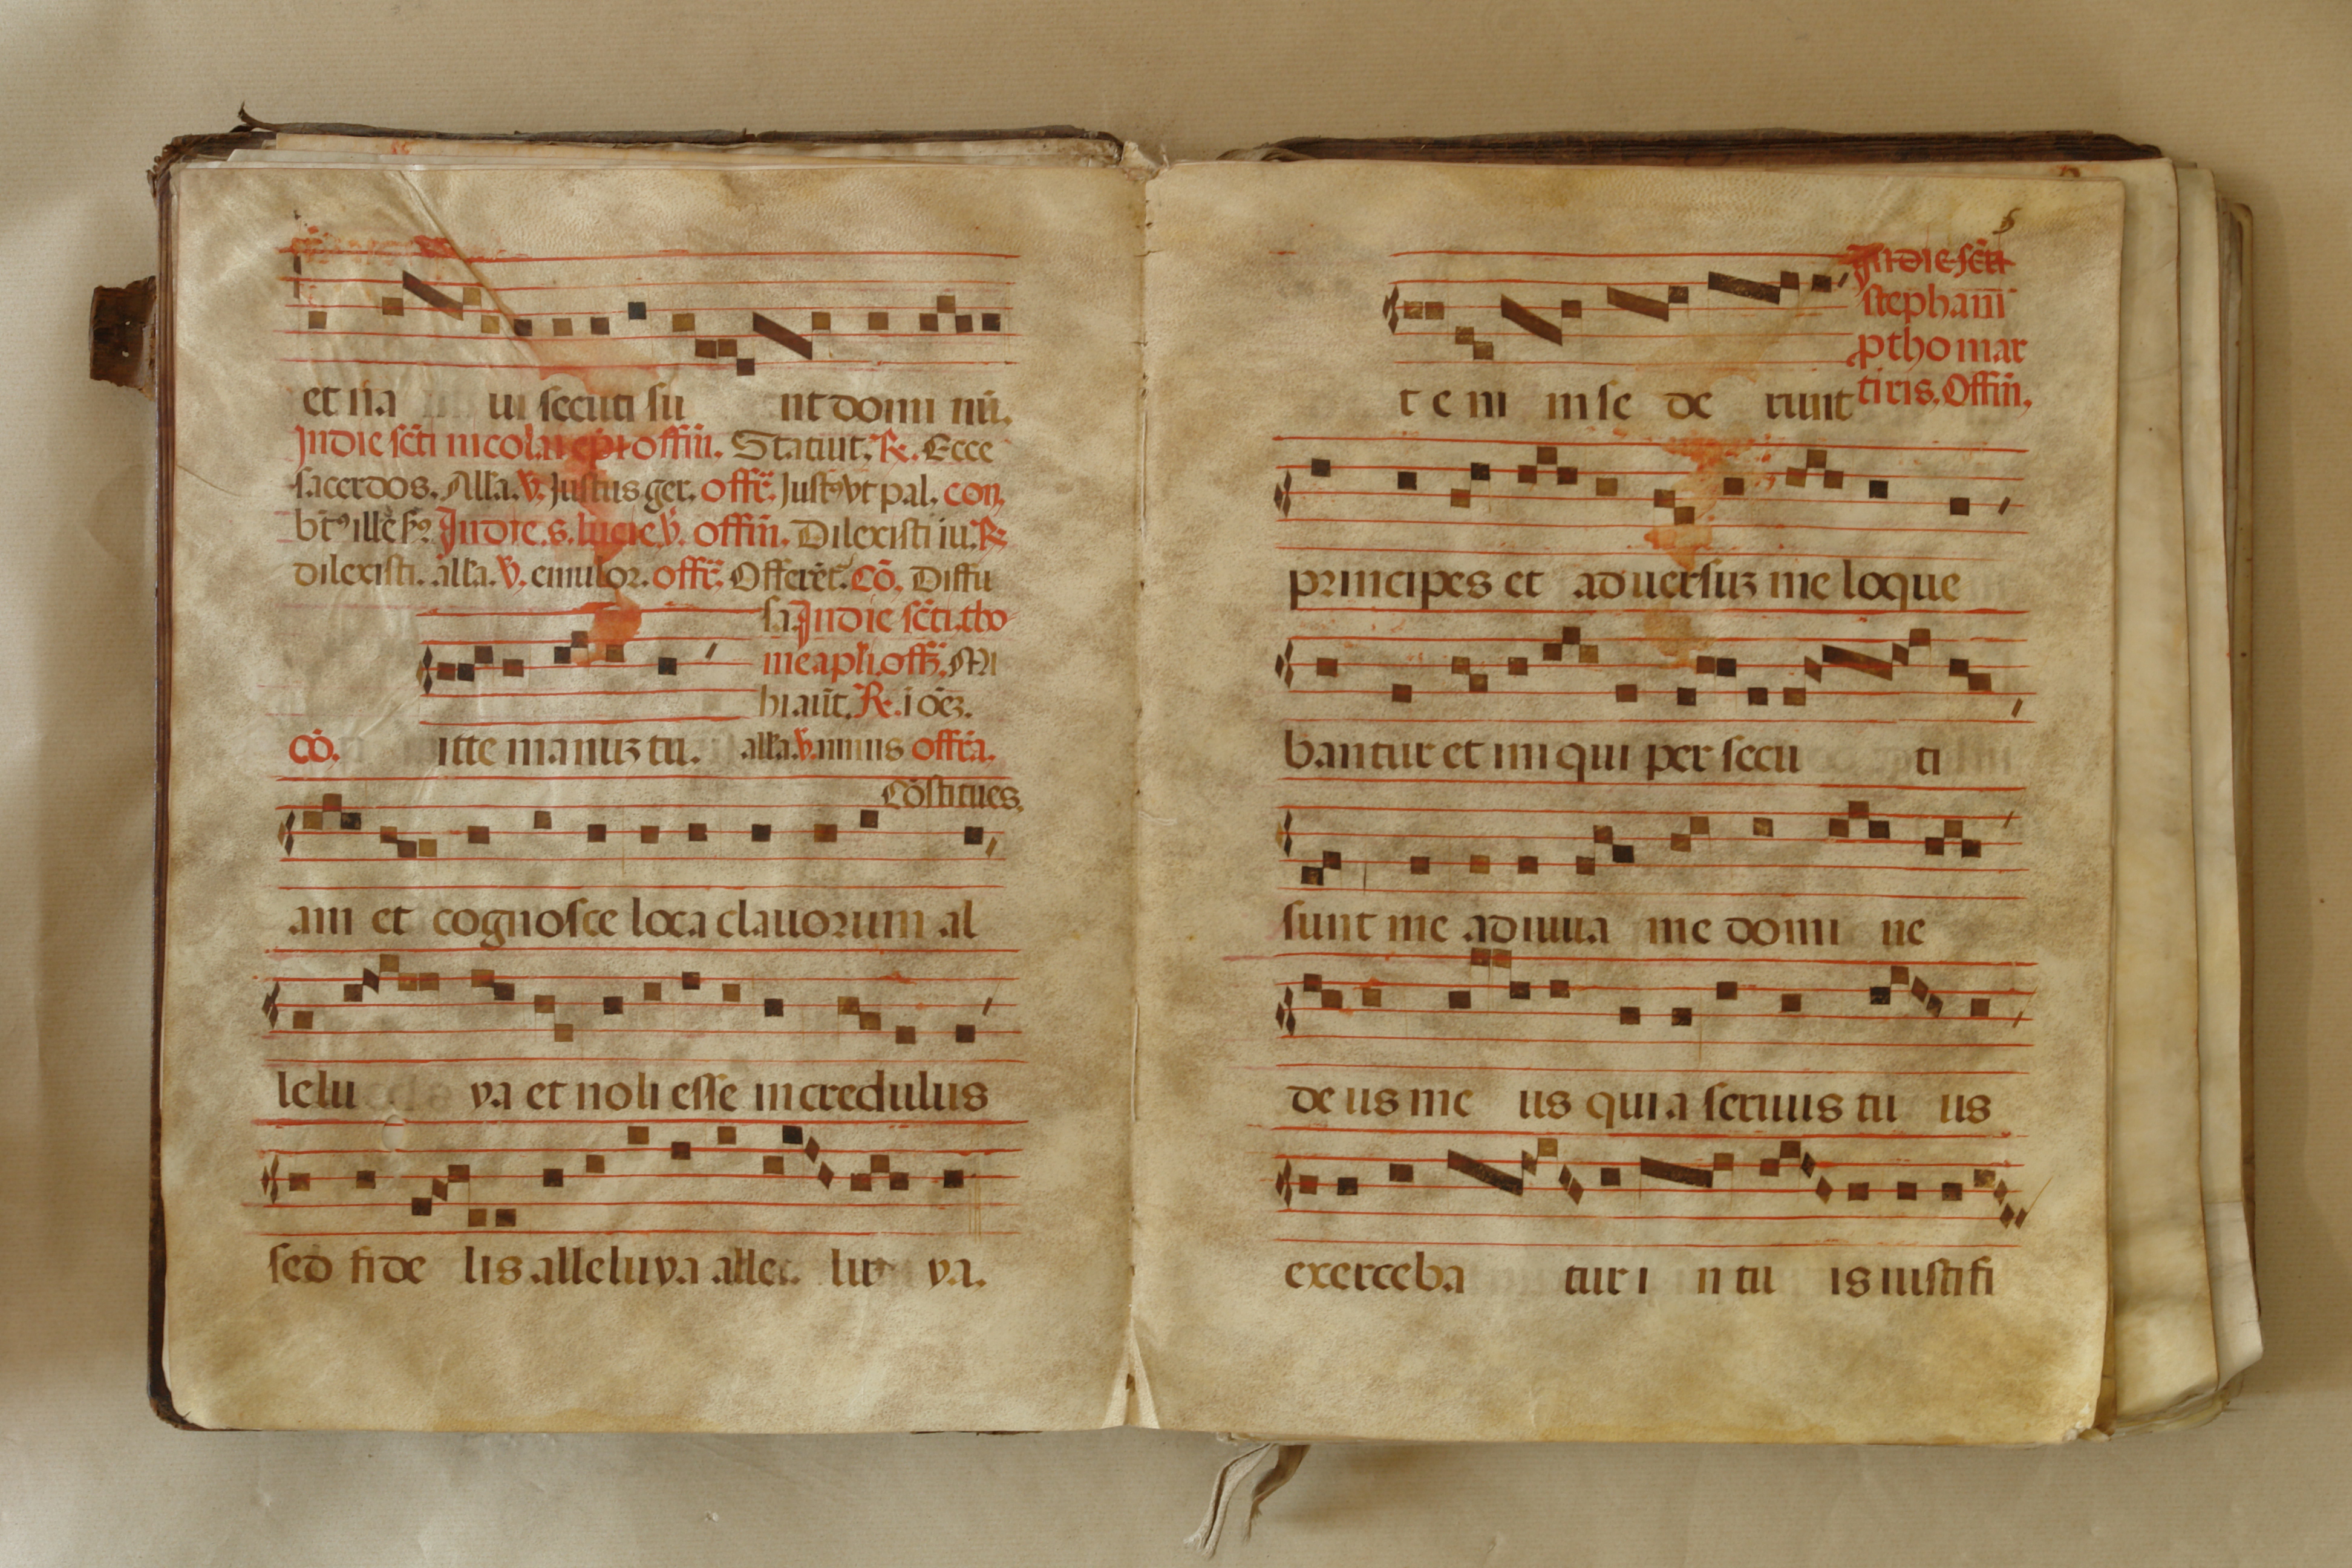 et na ui secuti su nt domi nū.
Jndie scti nicolai epi offiū. Statuit. R. Ecce
sacerdos. Alla. v. Justus ger. offr. Justꝰ vt pal. con.
btꝰ ille s Jndie. s. lucie. v. offiū. Dilexisti iu. R
dilexisti. alla. v. emulor. offr. Offerēt. Cō. Diffu
sa. Jndie scti. tho-
me apli. off. Mi
hi aūt. R. i
Cō. itte manuꝫ tu. alla. v. nimis offra.
Cōstitues.
am et cognosce loca clauorum al
lelu ya et noli esse incredulus
sed fide lis alleluya alle. lu ya.
Jndie scti
stephani
ptho mar
tiris. Offiū.
t e ni m se de runt
principes et aduersuꝫ me loque
bantur et ini qui per secu ti
sunt me adiuua me domi ne
de us me us quia seruus tu us
exerceba tur i n tu is iustifi